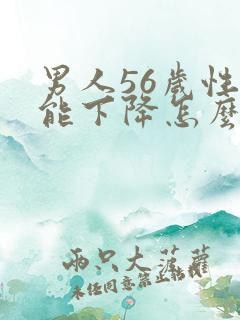 男人56歲性
能下降怎麼
兩只大菠蘿
未任同意禁止轉載